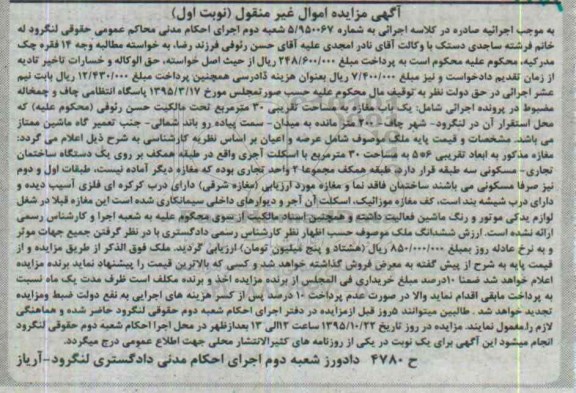 آگهی مزایده اموال غیر منقول (نوبت اول)
به موجب اجرائیه صادره در کلاسه اجرائی به شماره ۵/۹۵۰۰۶۷ شعبه دوم اجرای احکام مدنی محاکم عمومی حقوقی لنگرود له
خانم فرشته ساجدی دستک با وکالت آقای نادر امجدی علیه آقای حسن رئوفی فرزند رضا، به خواسته مطالبه وجه ۱۴ فقره چک
مدرکیه، محکوم علیه محکوم است به پرداخت مبلغ ۲۴۸/۶۰۰/۰۰۰ ریال از حیث اصل خواسته، حق الوکاله و خسارات تاخیر تادیه
از زمان تقدیم دادخواست و نیز مبلغ ۷/۴۰۰/۰۰۰ ریال بعنوان هزینه دادرسی همچنین پرداخت مبلغ ۱۲/۴۳۰/۰۰۰ ریال بابت نیم
عشر اجرائی در حق دولت نظر به توقیف مال محکوم علیه حسب صورتمجلس مورخ ۱۳۹۵/۳/۱۷ پاسگاه انتظامی چاف و چمخاله
مضبوط در پرونده اجرائی شامل: یک باب مغازه به مساحت تقریبی ۳۰ مترمربع تحت مالکیت حسن رئوفی (محکوم علیه) که
محل استقرار آن در لنگرود- شهر چاف- ۲۰۰ متر مانده به میدان- سمت پیاده رو باند شمالی- جنب تعمیر گاه ماشین ممتاز
می باشد. مشخصات و قیمت پایه ملک موصوف شامل عرصه و اعیان بر اساس نظریه کارشناسی به شرح ذیل اعلام می گردد:
مغازه مذکور به ابعاد تقریبی ۶*۵ به مساحت ۳۰ مترمربع با اسکلت آجری واقع در طبقه همکف بر روی یک دستگاه ساختمان
تجاری- مسکونی سه طبقه قرار دارد. طبقه همکف مجموعا ۲ واحد تجاری بوده که مغازه دیگر آماده نیست، طبقات اول و دوم
نیز صرفا مسکونی می باشند ساختمان فاقد نما و مغازه مورد ارزیابی (مغازه شرقی) دارای درب کرکره ای فلزی آسیب دیده و
دارای درب شیشه بند است، کف مغازه موزائیک، اسکلت آن آجر و دیوارهای داخلی سیمانکاری شده است این مغازه قبلا در شغل
لوازم یدکی موتور و رنگ ماشین فعالیت داشته و همچنین اسناد مالکیت از سوی محکوم علیه به شعبه اجرا و کارشناس رسمی
ارائه نشده است. ارزش ششدانگ ملک موصوف حسب اظهار نظر کارشناس رسمی دادگستری با در نظر گرفتن جمیع جهات موثر
و به نرخ عادله روز بمبلغ ۸۵۰/۰۰۰/۰۰۰ ریال (هشتاد و پنج میلیون تومان) ارزیابی گردید. ملک فوق الذکر از طریق مزایده و از
قیمت پایه به شرح از پیش گفته به معرض فروش گذاشته خواهد شد و کسی که بالاترین قیمت را پیشنهاد نماید برنده مزایده
اعلام خواهد شد ضمنا ۱۰درصد مبلغ خریداری فی المجلس از برنده مزایده اخذ و برنده مکلف است ظرف مدت یک ماه نسبت
به پرداخت مابقی اقدام نماید والا در صورت عدم پرداخت ۱۰ درصد پس از کسر هزینه های اجرایی به نفع دولت ضبط ومزایده
تجدید خواهد شد. طالبین میتوانند ۵روز قبل ازمزایده در دفتر اجرای احکام شعبه دوم حقوقی لنگرود حاضر شده و هماهنگی
لازم را معمول نمایند. مزایده در روز تاریخ ۱۳۹۵/۱۰/۲۲ ساعت ۱۲الی ۱۳ بعدازظهر در محل اجرا احکام شعبه دوم حقوقی لنگرود
انجام میشود این آگهی برای یک نوبت در یکی از روزنامه های کثیرالانتشار محلی جهت اطلاع عمومی درج میگردد.
ح ۴۷۸۰ دادورز شعبه دوم اجرای احکام مدنی دادگستری لنگرود-آریاز